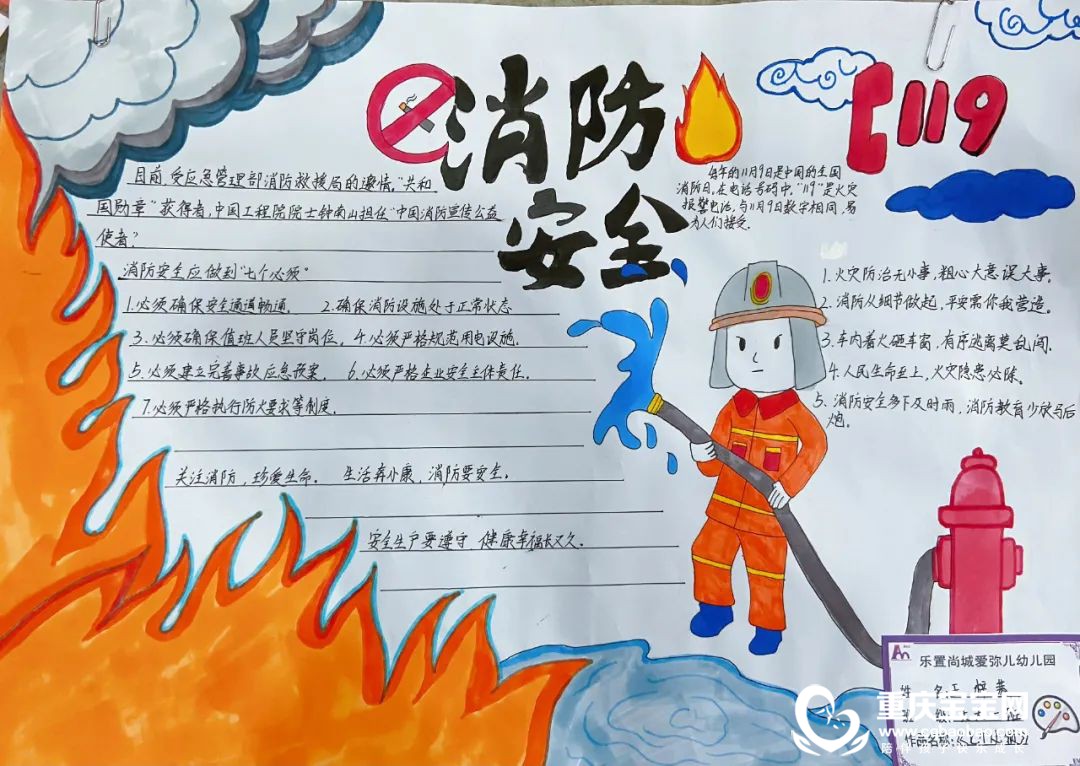 消防
安全
119
目前,受应急管理部消防救援局的邀情,"共和
国勋章"获得者,中国工程院院士钟南山担任"中国消防宣传公益
使者"
消防安全应做到"七个必须"
1.必须确保安全通道畅通。 2.确保消防设施处于正常状态
3.必须确保值班人员坚守岗位。 4.必须严格规范用电设施.
5.必须建立完善事故应急预案. 6.必须严格企业安全主体责任.
7.必须严格执行防火要求等制度.
关注消防,珍爱生命。 生活奔小康,消防要安全。
安全生产要遵守 健康幸福长又久。
每年的11月9日是中国的全国
消防日,在电话号码中,"119"是火灾
报警电话,与11月9日数字相同,易
为人们接受.
1.火灾防治无小事,粗心大意误大事.
2.消防从细节做起,平安需你我营造。
3.车内着火砸车窗,有序逃离莫乱闯.
4.人民生命至上,火灾隐患必除。
5.消防安全多下及时雨,消防教育少放马后
炮。
乐置尚城爱弥儿幼儿园
姓 名:王
班 级:
作品名称:
重庆宝宝网
www.cqbaobao.com
陪伴孩子快乐成长